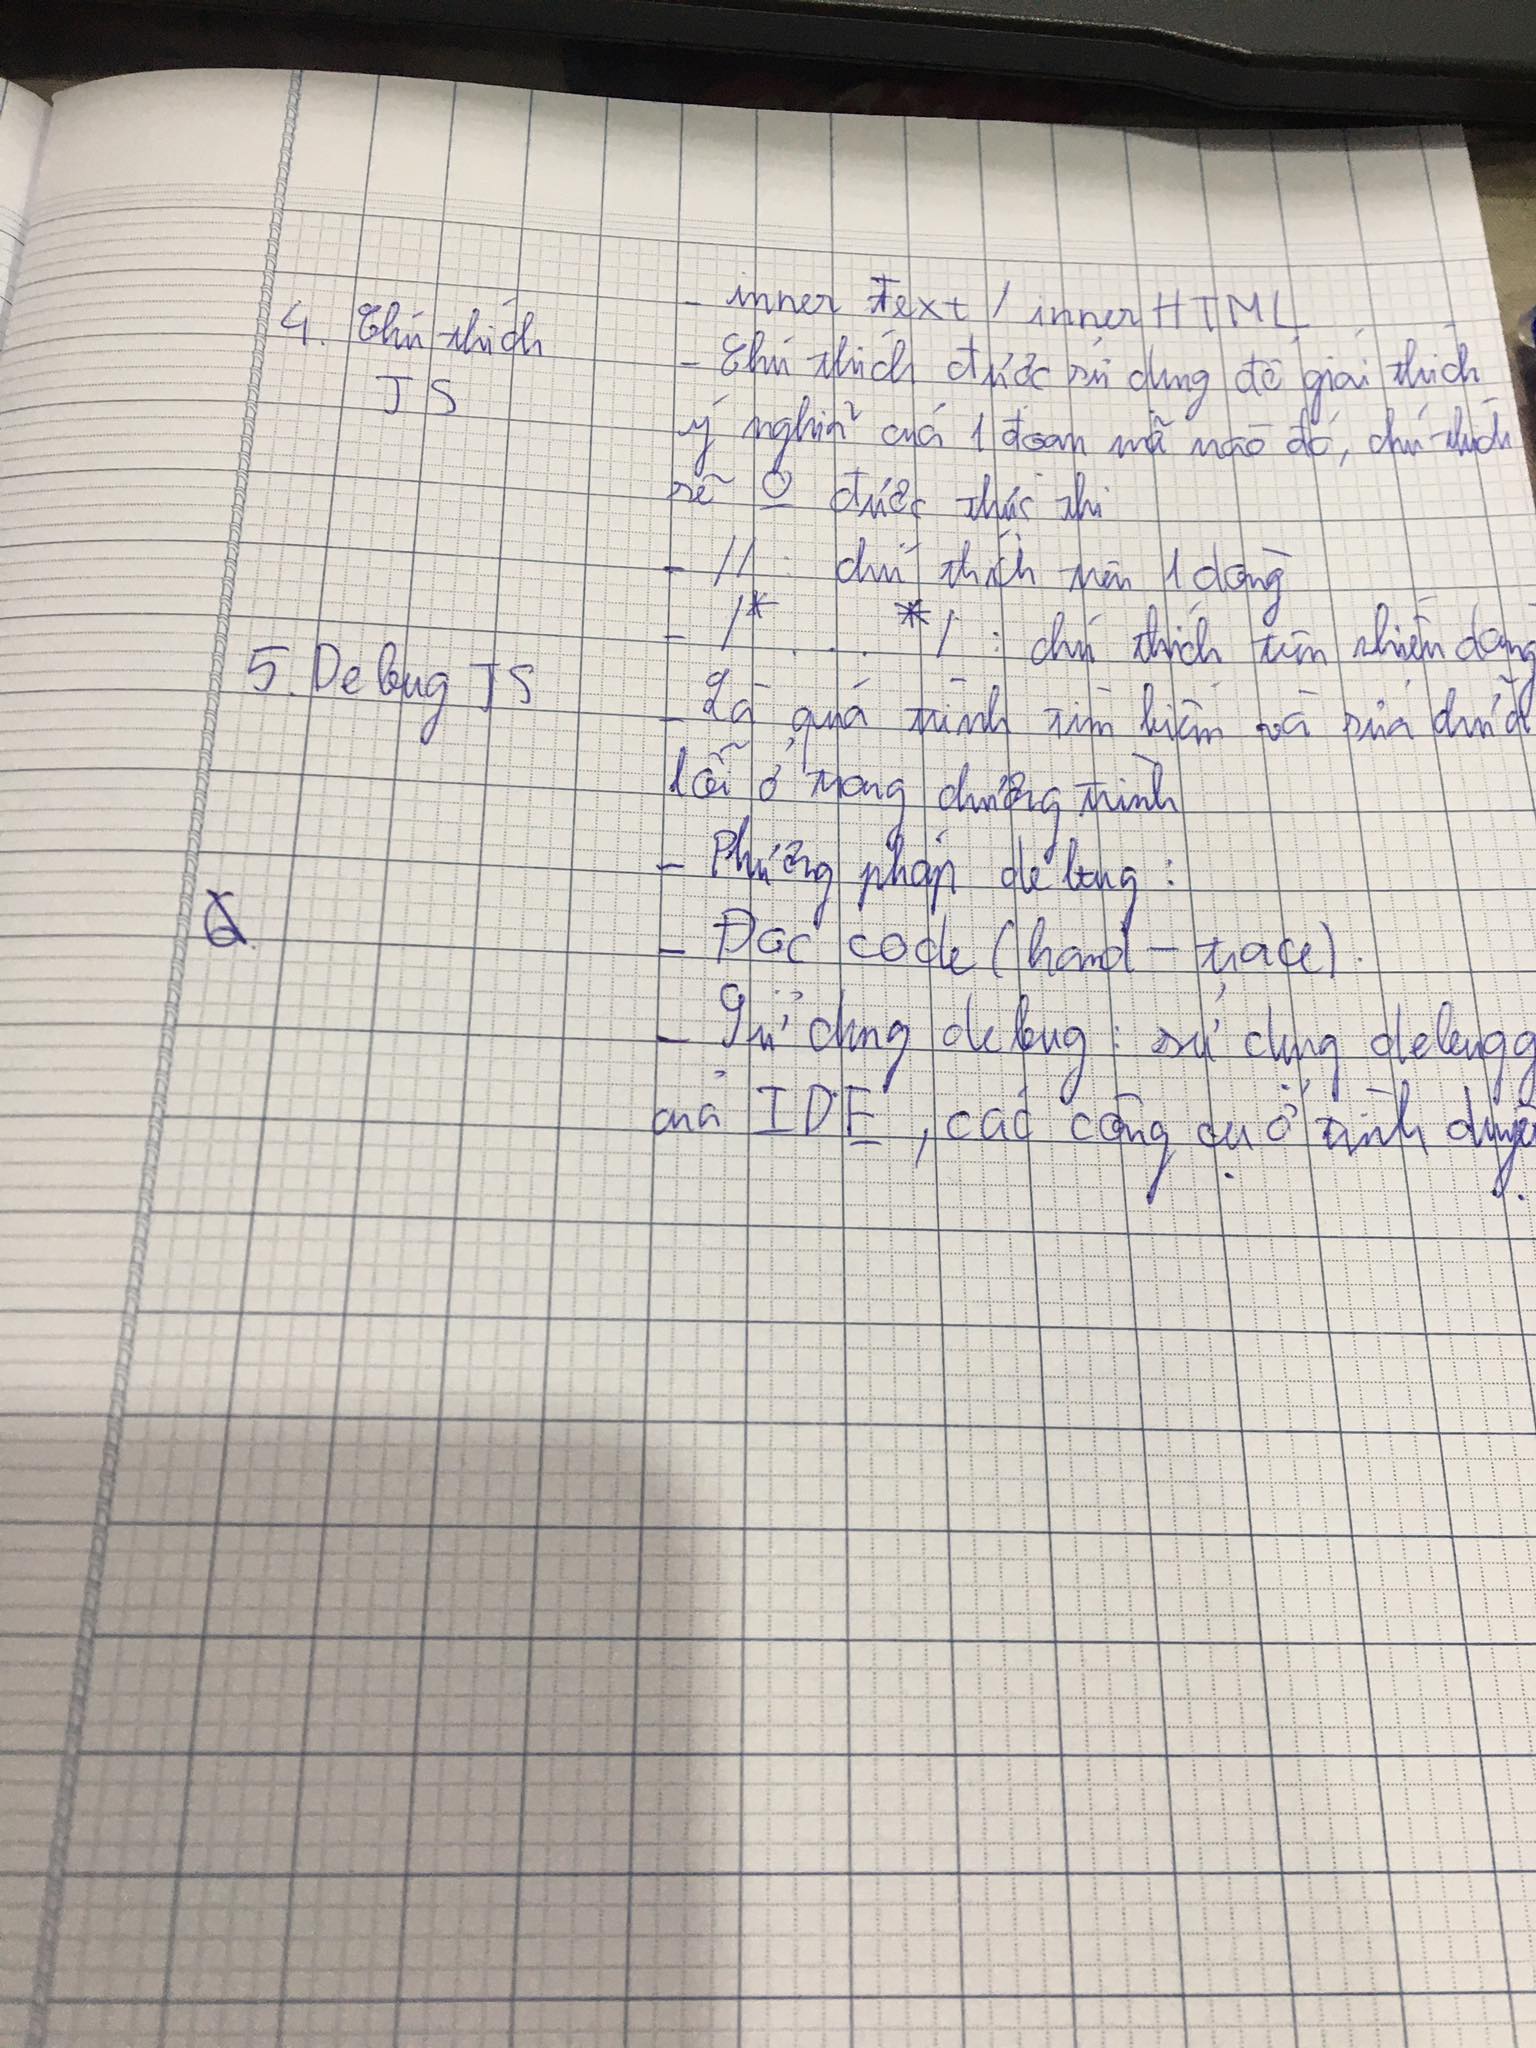 - inner Text / innerHTML
4. Chú thích
JS
- Chú thích được sử dụng để giải thích
ý nghĩa của 1 đoạn mã nào đó, chú thích
sẽ O được thực thi
- // : chú thích trên 1 dòng
- /* . . . */ : chú thích trên nhiều dòng
5. Debug JS
- Là quá trình tìm kiếm và sửa chữa
lỗi ở trong chương trình
- Phương pháp debug :
- Đọc code (hand - trace).
- Sử dụng debug : sử dụng debugg
của IDE, các công cụ ở trình duyệ